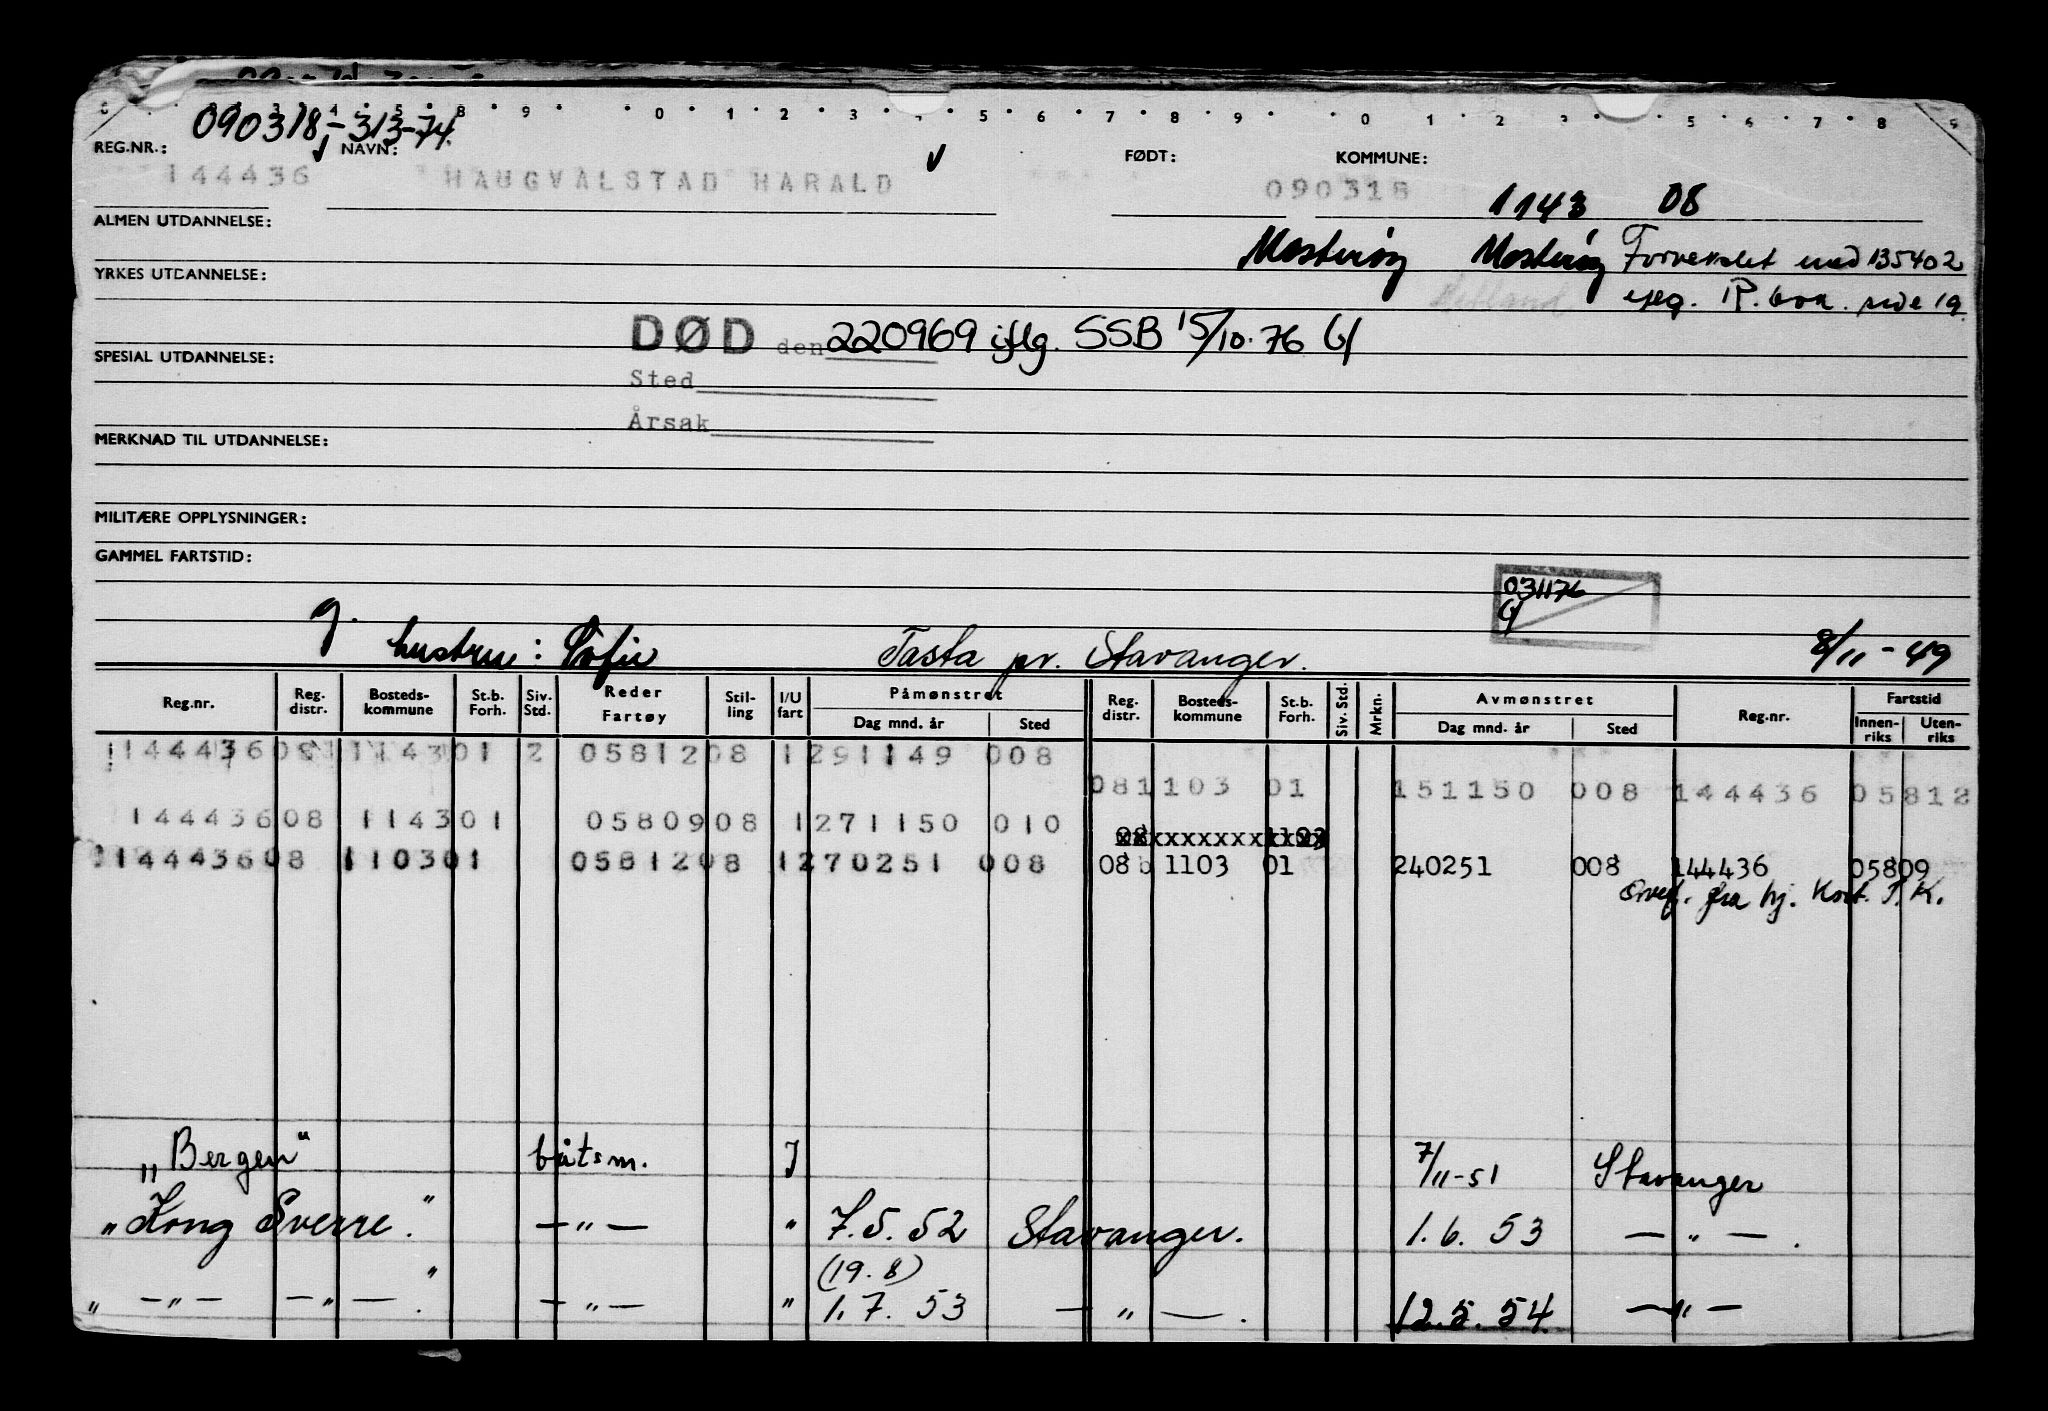 090318-313-74.
REG.NR.: NAVN: FØDT: KOMMUNE:
144436 HAUGVALSTAD HARALD 090318 1143 08
ALMEN UTDANNELSE:
Mosterøy Mosterøy Forvekslet med 135402
YRKES UTDANNELSE:
Hetland side 19.
DØD den 220969 iflg. SSB 15/10.76
SPESIAL UTDANNELSE:
Sted
Årsak
MERKNAD TIL UTDANNELSE:
MILITÆRE OPPLYSNINGER:
GAMMEL FARTSTID:
031176
g. hustru: Sofie Tasta pr. Stavanger. 8/11-49
Reg.nr. Reg. distr. Bosteds-kommune St.b. Forh. Siv. Std. Reder Fartøy Stil-ling I/U fart Påmønstret Dag mnd. år Sted Reg. distr. Bosteds-kommune St.b. Forh. Siv. Std. Mrkn. Avmønstret Dag mnd. år Sted Reg.nr. Fartstid Innen-riks Uten-riks
144436 08 1143 01 2 05812 08 1 291149 008
08 1103 01 151150 008 144436 05812
144436 08 1143 01 05809 08 1 271150 010
144436 08 1103 01 05812 08 1 270251 008 08 1103 01 240251 008 144436 05809
Overf. fra hj. Kort. J.K.
"Bergen" båtsm. J 7/11-51 Stavanger
"Kong Sverre." — " — " 7.5.52 Stavanger. 1.6.53 — " — .
(19.8)
" — " — — " — ." — " — " 1.7.53 — " — . 12.5.54. — " —